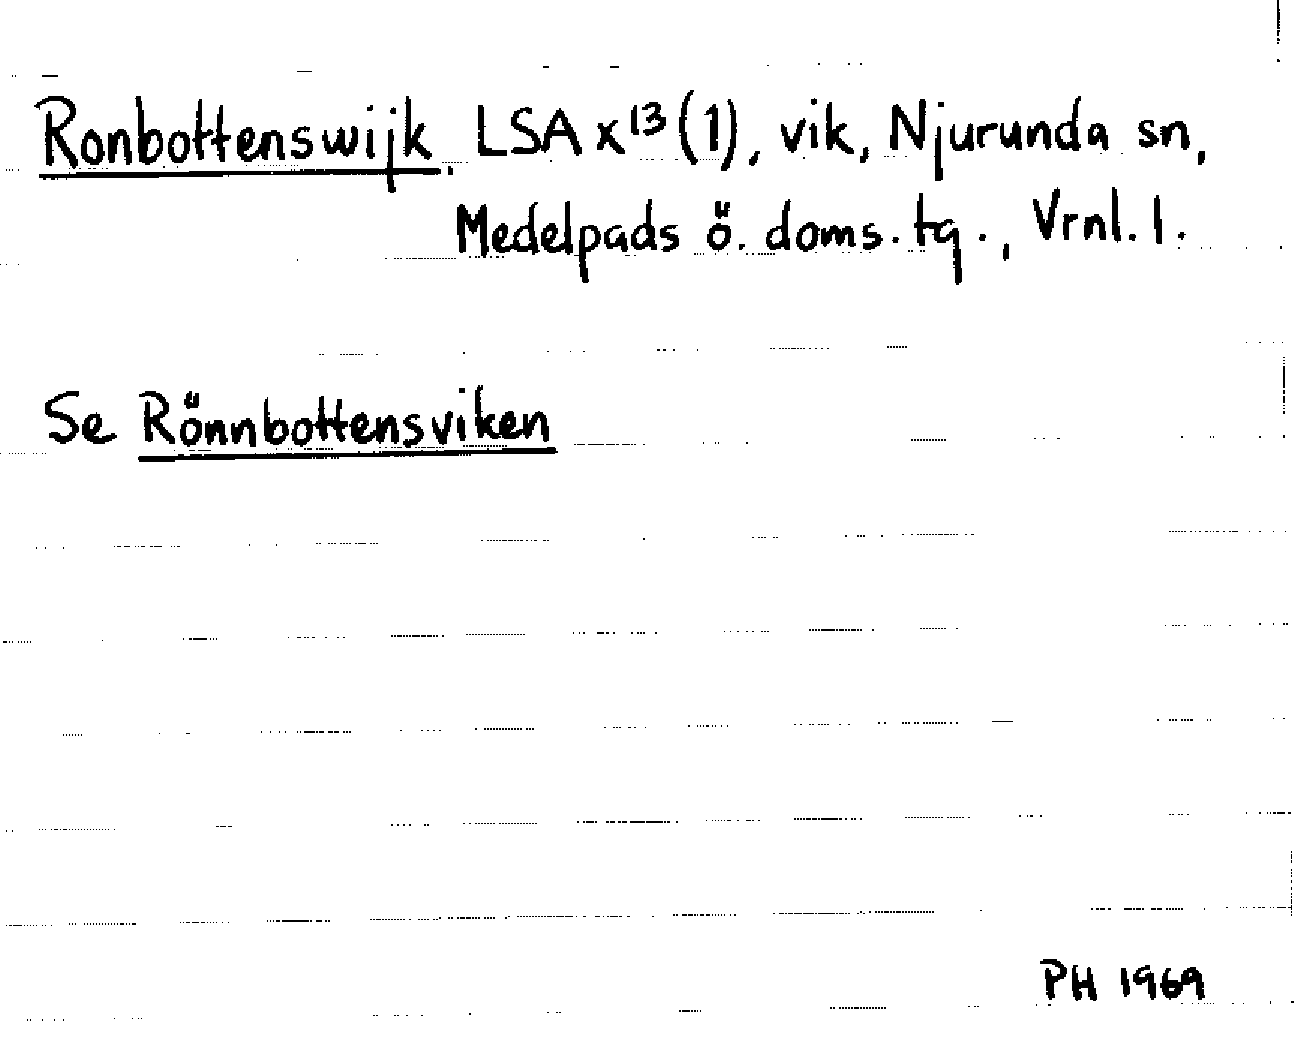 Ronbottenswijk. LSA x¹³(1), vik, Njurunda sn,
Medelpads ö. doms. tg., Vrnl. l.
Se Rönnbottensviken
PH 1969